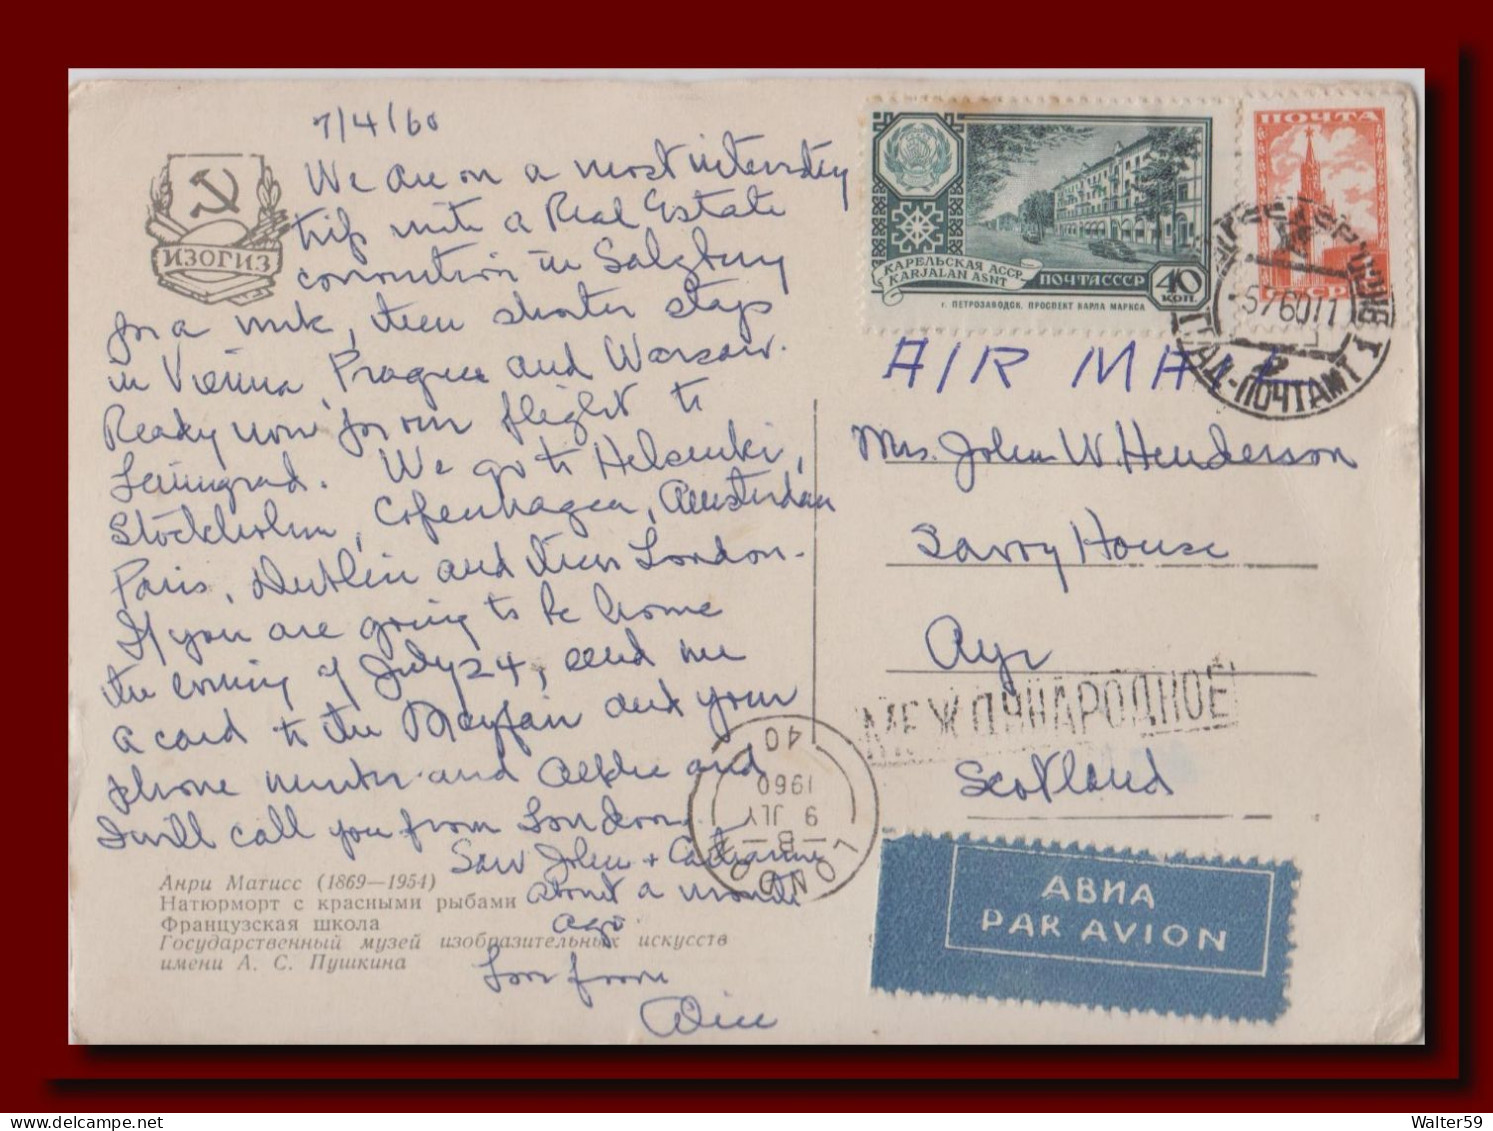 7/4/60
We are on a most interesting
trip with a Real Estate
convention in Salzburg
for a week, then shorter stops
in Vienna, Prague and Warsaw.
Ready now for our flight to
Leningrad. We go to Helsinki,
Stockholm, Copenhagen, Amsterdam
Paris, Dublin and then London.
If you are going to be home
the evening of July 24, send me
a card to the Mayfair and your
phone number and and
I will call you from London.
Saw John + Catharine
about a month
ago.
Love from
ИЗОГИЗ
Анри Матисс (1869—1954)
Натюрморт с красными рыбами
Французская школа
Государственный музей изобразительных искусств
имени А. С. Пушкина
КАРЕЛЬСКАЯ АССР
KARJALAN ASNT
ПОЧТА СССР
40 КОП
г. ПЕТРОЗАВОДСК. ПРОСПЕКТ КАРЛА МАРКСА
ПОЧТА
СССР
-5760 11
ПОЧТАМТ 1
AIR MAIL
Mrs. John W. Henderson
Savoy House
Ayr
Scotland
МЕЖДУНАРОДНОЕ
LONDON
B
9 JLY
1960
40
АВИА
PAR AVION
Walter59